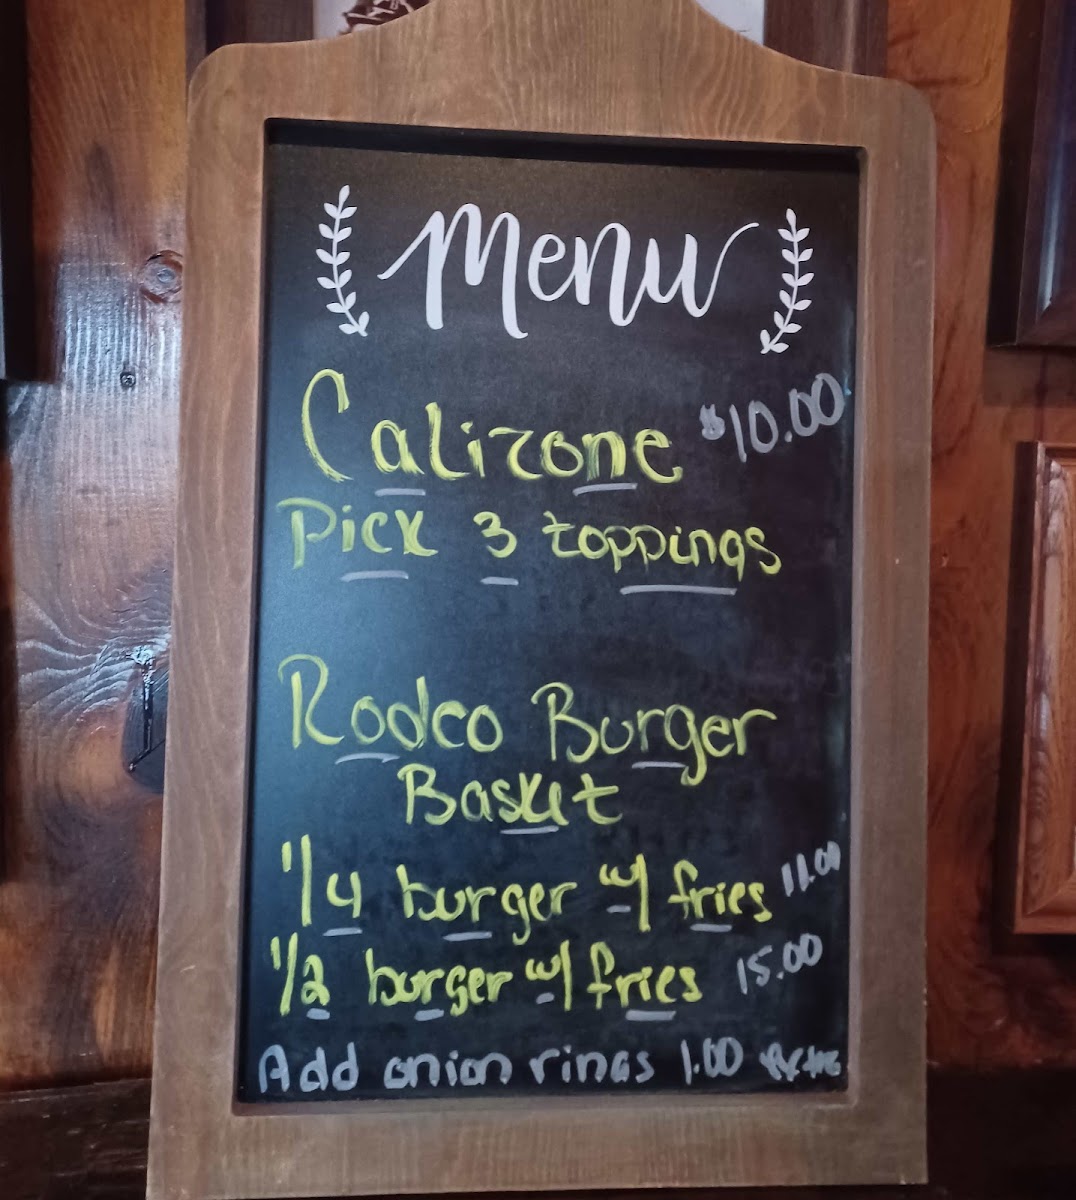 Menu
Calizone $10.00
Pick 3 toppings
Rodeo Burger
Basket
1/4 burger w/ fries 11.00
1/2 burger w/ fries 15.00
Add onion rings 1.00 extra